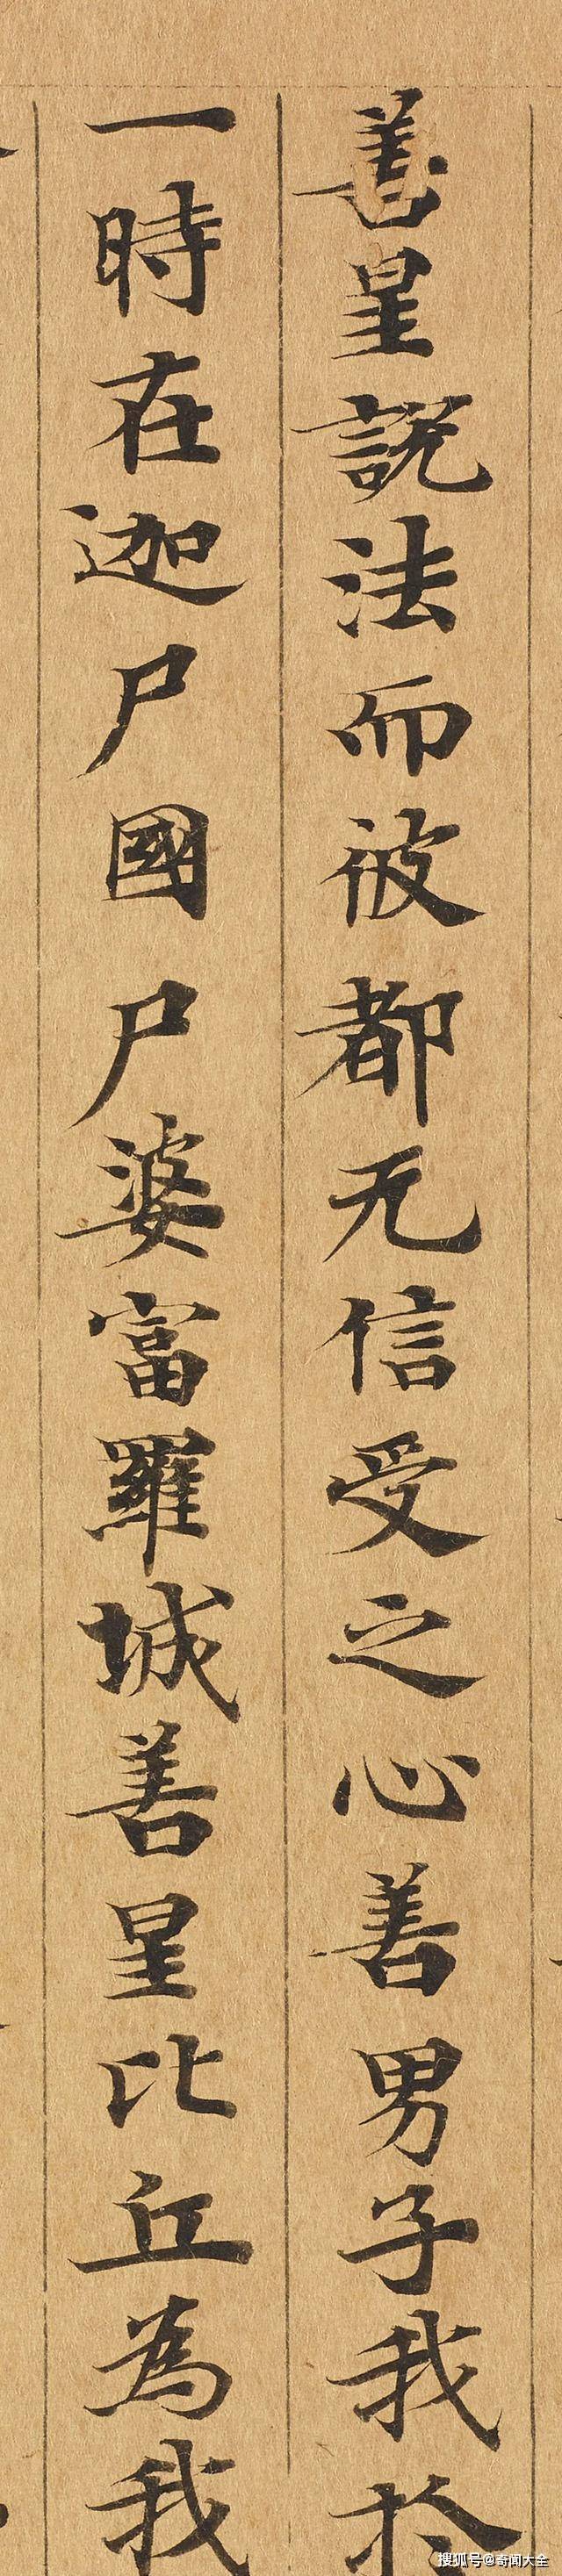 善星說法而彼都无信受之心善男子我於
一時在迦尸國尸婆富羅城善星比丘為我
搜狐号@奇闻大全